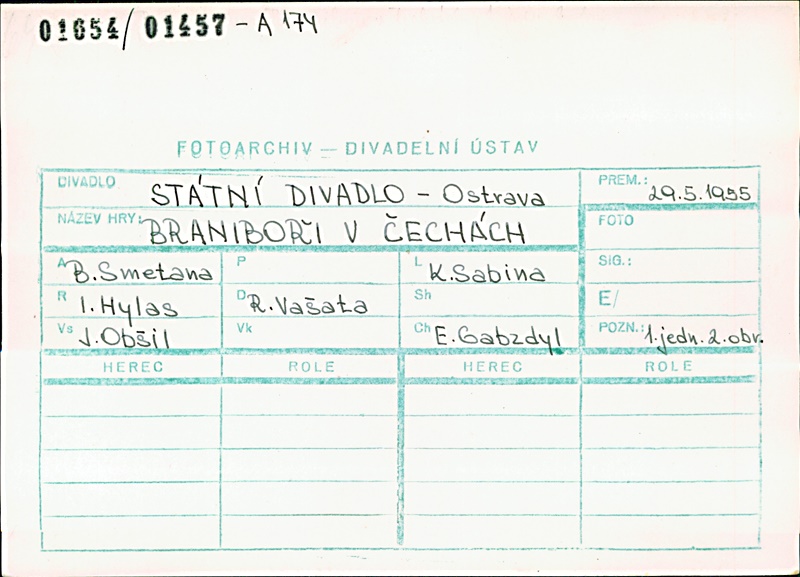 01654/01457 - A 174
FOTOARCHIV — DIVADELNÍ ÚSTAV
DIVADLO STÁTNÍ DIVADLO - Ostrava PREM.: 29.5.1955
NÁZEV HRY: BRANIBOŘI V ČECHÁCH FOTO
A B.Smetana P L K.Sabina SIG.:
R I.Hylas D R.Vašata Sh E/
Vs J.Obšil Vk Ch E.Gabzdyl POZN.: 1.jedn. 2.obr.
HEREC ROLE HEREC ROLE